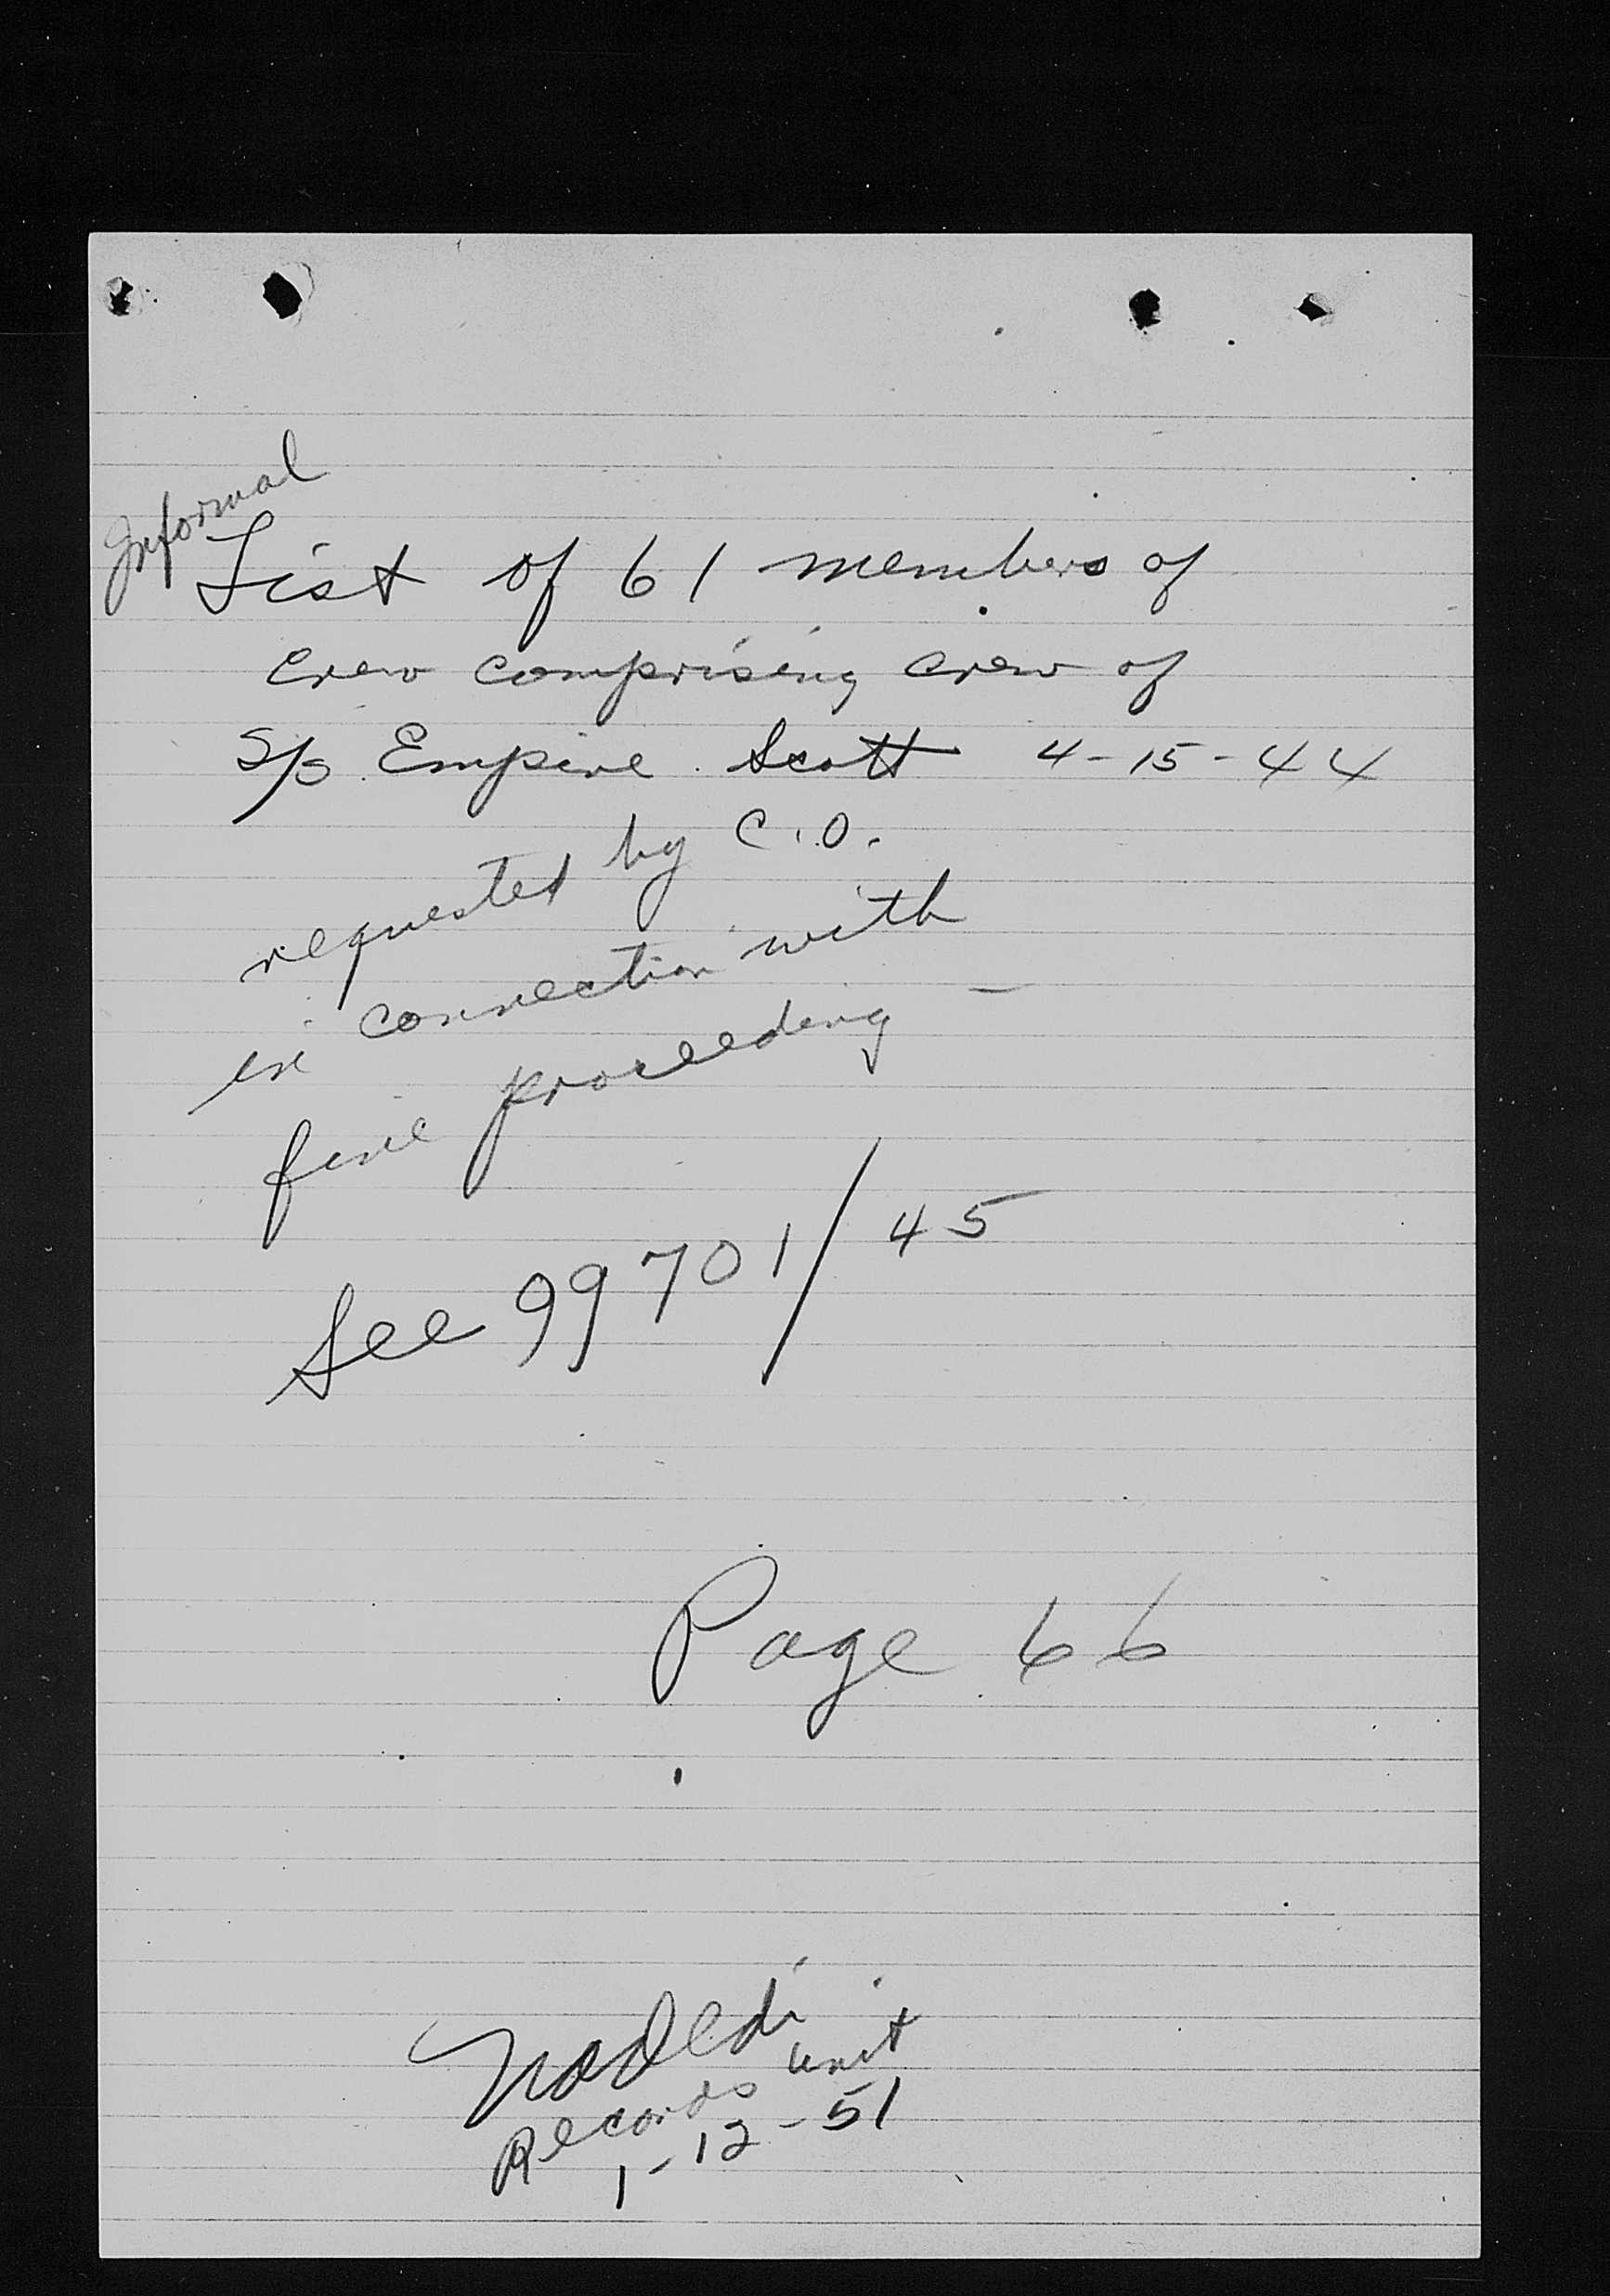 Informal
List of 61 members of
crew comprising crew of
S/S Empire Scott 4-15-44
requested by C.O.
in connection with
fine proceeding -
See 99701/45
Page 66
Records Unit
1-12-51